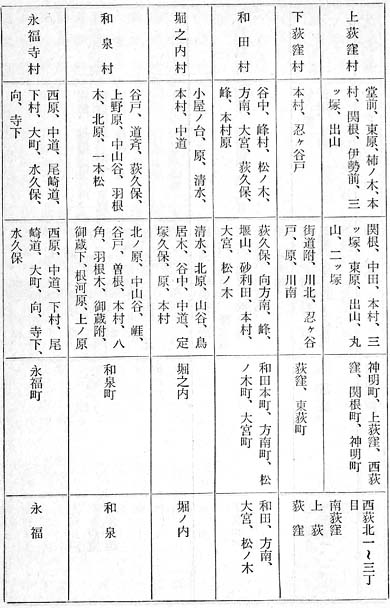 上荻窪村
堂前、東原、柿ノ木、本
村、関根、伊勢前、三
ッ塚、出山
関根、中田、本村、三
ッ塚、東原、出山、丸
山、二ッ塚
神明町、上荻窪、西荻
窪、関根町、神明町
西荻北一〜三丁
目
南荻窪
上荻
下荻窪村
本村、忍ヶ谷戸
街道附、川北、忍ヶ谷
戸、原、川南
荻窪、東荻町
荻窪
和田村
谷中、峰村、松ノ木、
方南、大宮、荻久保、
峰、本村原
荻久保、向方南、峰、
堰山、砂利田、本村、
大宮、松ノ木
和田本町、方南町、松
ノ木町、大宮町
和田、方南、
大宮、松ノ木
堀之内村
小屋ノ台、原、清水、
本村、中道
清水、北原、山谷、鳥
居木、谷中、中道、定
塚久保、原、本村
堀之内
堀ノ内
和泉村
谷戸、道斉、荻久保、
上野原、中山谷、羽根
木、北原、一本松
北ノ原、中山谷、崕、
谷戸、曽根、本村、八
角、羽根木、御蔵附、
御蔵下、根河原、上ノ原
和泉町
和泉
永福寺村
西原、中道、尾崎道、
下村、大町、水久保、
向、寺下
西原、中道、下村、尾
崎道、大町、向、寺下、
水久保
永福町
永福